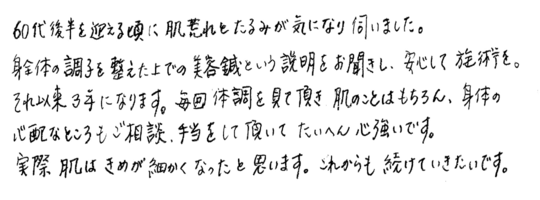 60代後半を迎える頃に肌荒れとたるみが気になり伺いました。
身体全体の調子を整えた上での美容鍼という説明をお聞きし、安心して施術を。
それ以来3年になります。毎回体調を見て頂き肌のことはもちろん、身体の
心配なところもご相談、手当をして頂いてたいへん心強いです。
実際肌はきめが細かくなったと思います。これからも続けていきたいです。